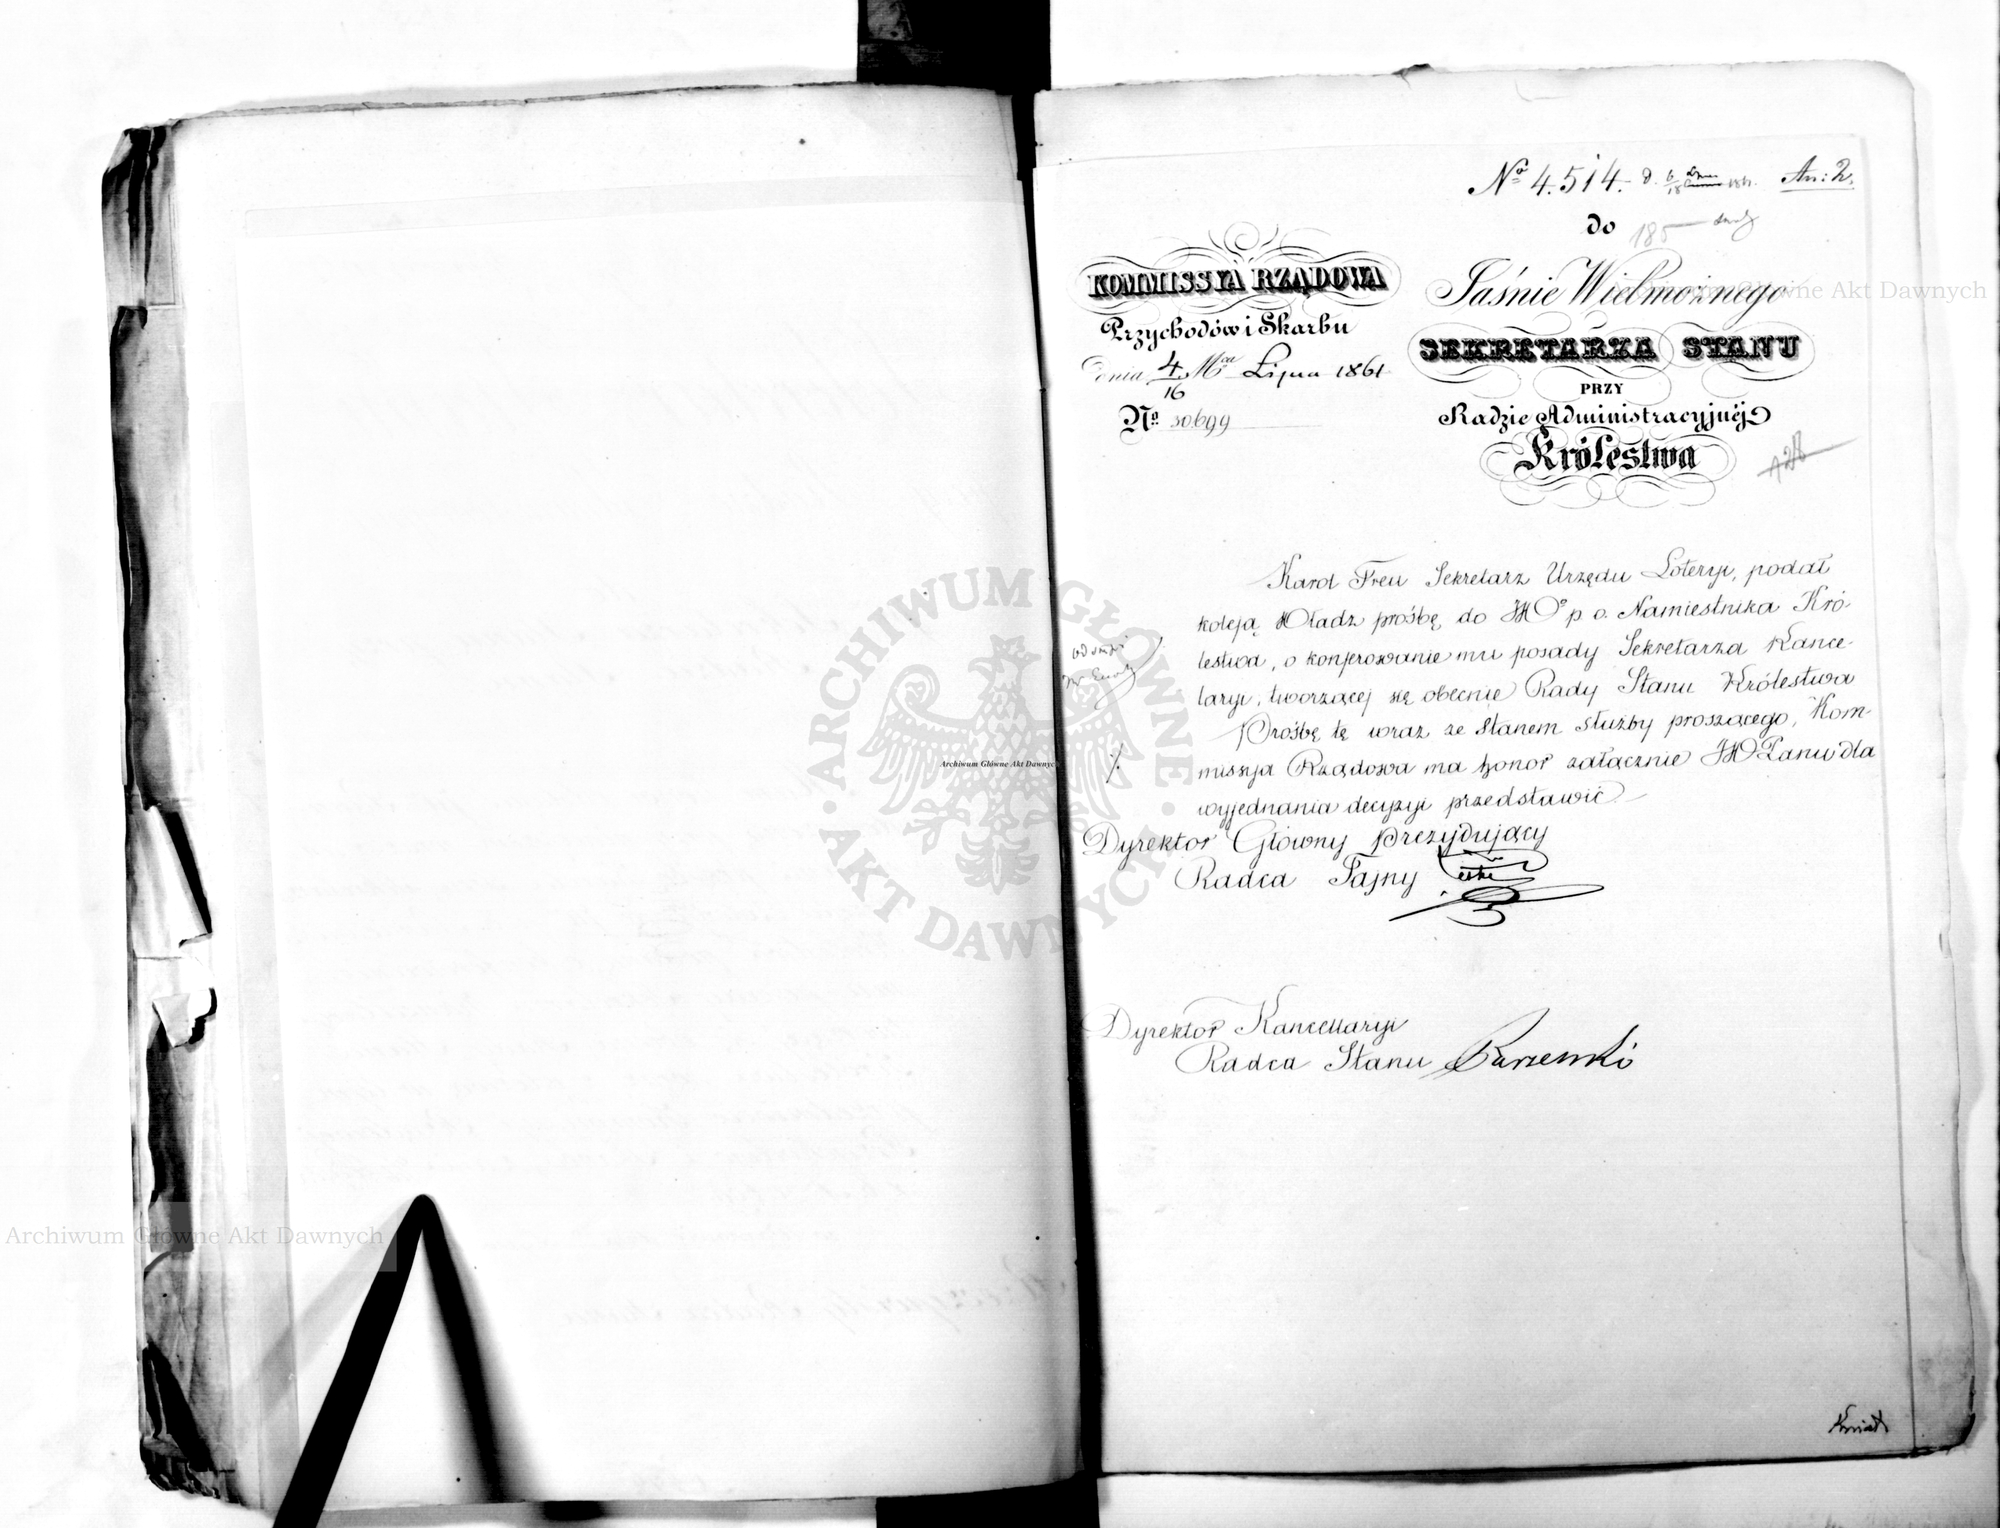 Nº 4.514. d. 6/18 1861. An: 2.
do
185
KOMMISSYA RZĄDOWA
Przychodów i Skarbu
Dnia 4/16 Mca Lipca 1861
No. 30.699
Jaśnie Wielmożnego
SEKRETARZA STANU
PRZY
Radzie Administracyjnéj
Królestwa
128
Karol Freu Sekretarz Urzędu Loteryi, podał
koleją Władz prośbę do JWº p. o. Namiestnika Kró-
lestwa, o konferowanie mu posady Sekretarza Kance-
laryi, tworzącej się obecnie Rady Stanu Królestwa
Prośbę tę wraz ze stanem służby proszącego, Kom-
missyja Rządowa ma honor załącznie JW Panu dla
wyjednania decyzyi przedstawić.
Dyrektor Główny prezydujący
Radca Tajny
Dyrektor Kancellaryi
Radca Stanu
ARCHIWUM GŁÓWNE AKT DAWNYCH
Archiwum Główne Akt Dawnych
Archiwum Główne Akt Dawnych
Główne Akt Dawnych